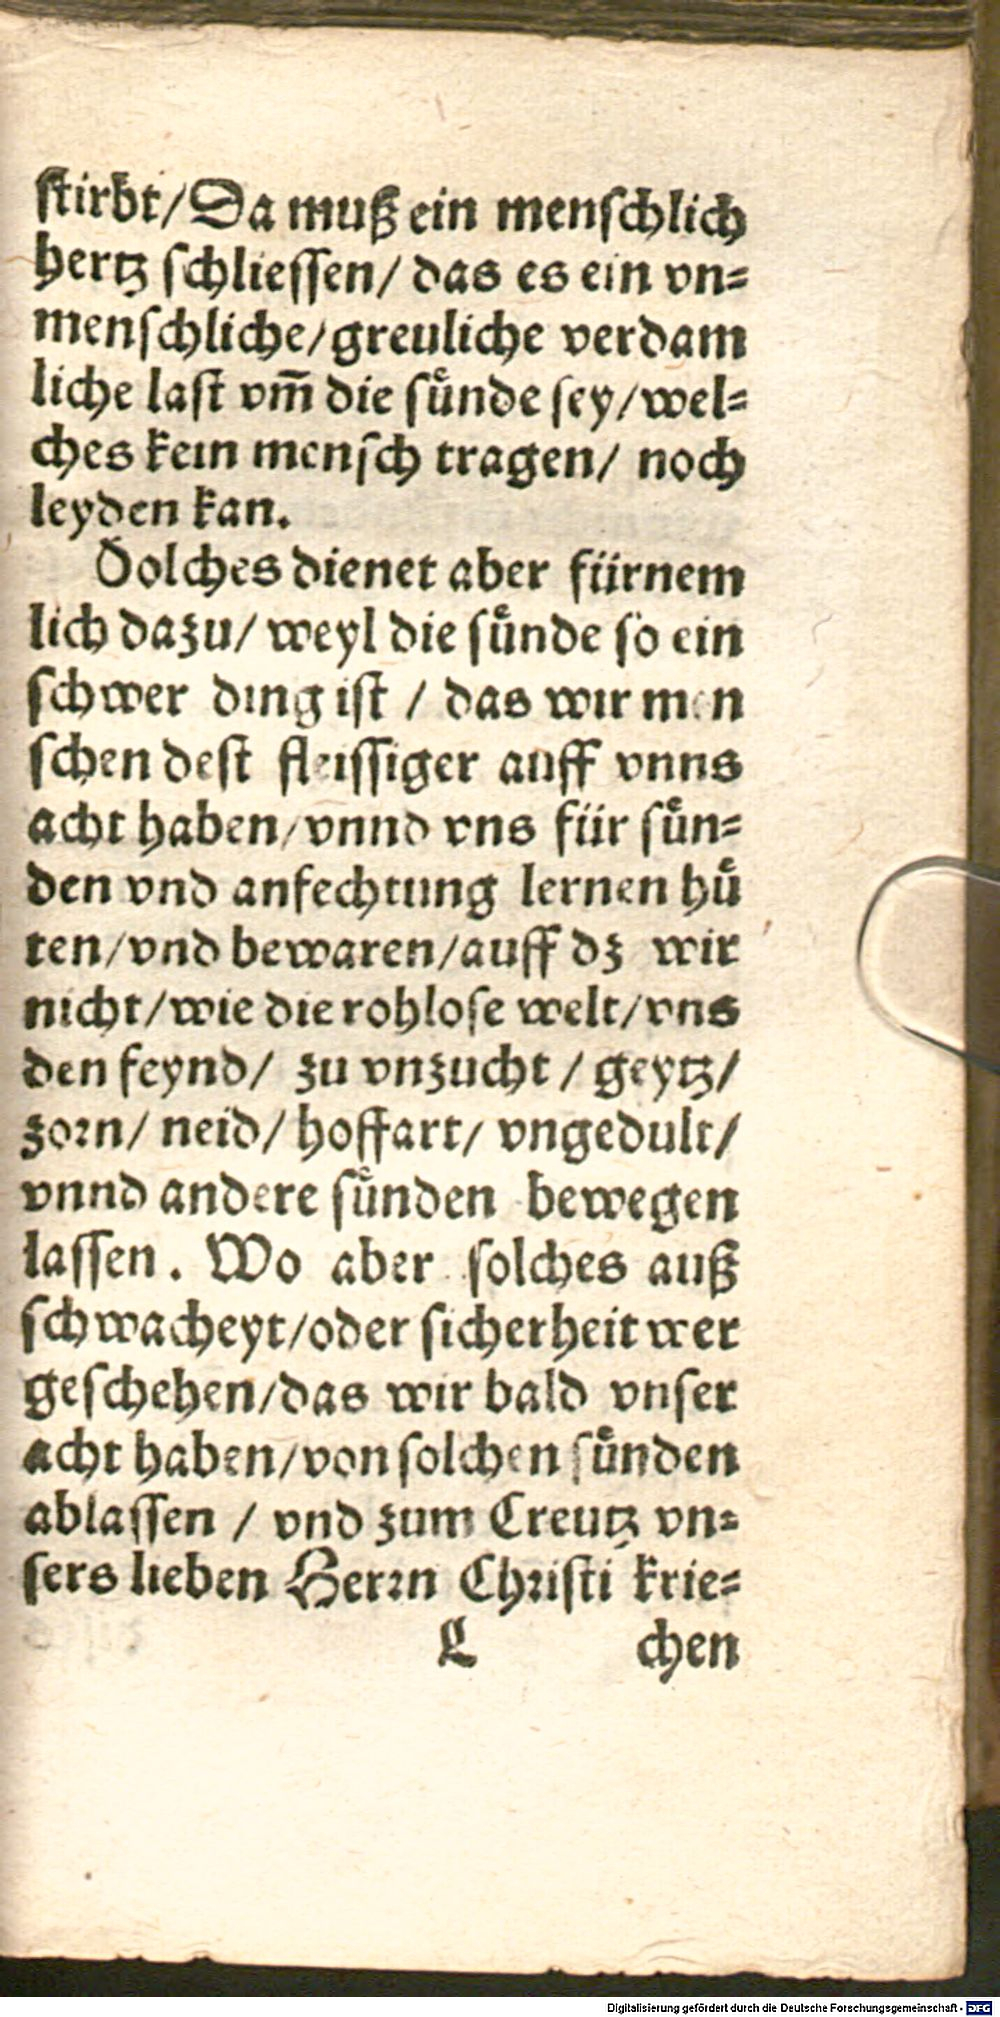 ſtirbt/Da muß ein menſchlich
hertz ſchlieſſen/ das es ein vn⸗
menſchliche/greuliche verdam
liche laſt vm̃ die ſuͤnde ſey/wel⸗
ches kein menſch tragen/ noch
leyden kan.
Solches dienet aber fürnem
lich dazu/ weyl die ſuͤnde ſo ein
ſchwer ding iſt / das wir men
ſchen deſt fleiſſiger auff vnns
acht haben/vnnd vns für ſuͤn⸗
den vnd anfechtung lernen huͤ
ten/vnd bewaren/auff dz wir
nicht/wie die rohloſe welt/vns
den feynd/ zu vnzucht / geytz/
zorn/ neid/ hoffart/ vngedult/
vnnd andere ſuͤnden bewegen
laſſen. Wo aber ſolches auß
ſchwacheyt/oder ſicherheit wer
geſchehen/das wir bald vnſer
acht haben/von ſolchen ſuͤnden
ablaſſen / vnd zum Creutz vn⸗
ſers lieben Herrn Chriſti krie⸗
L chen
Digitalisierung gefördert durch die Deutsche Forschungsgemeinschaft - DFG